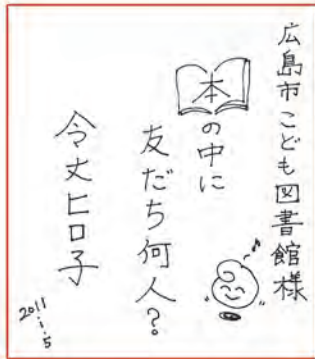 広島市こども図書館様
本の中に
友だち何人?
令丈ヒロ子
2011.1.5